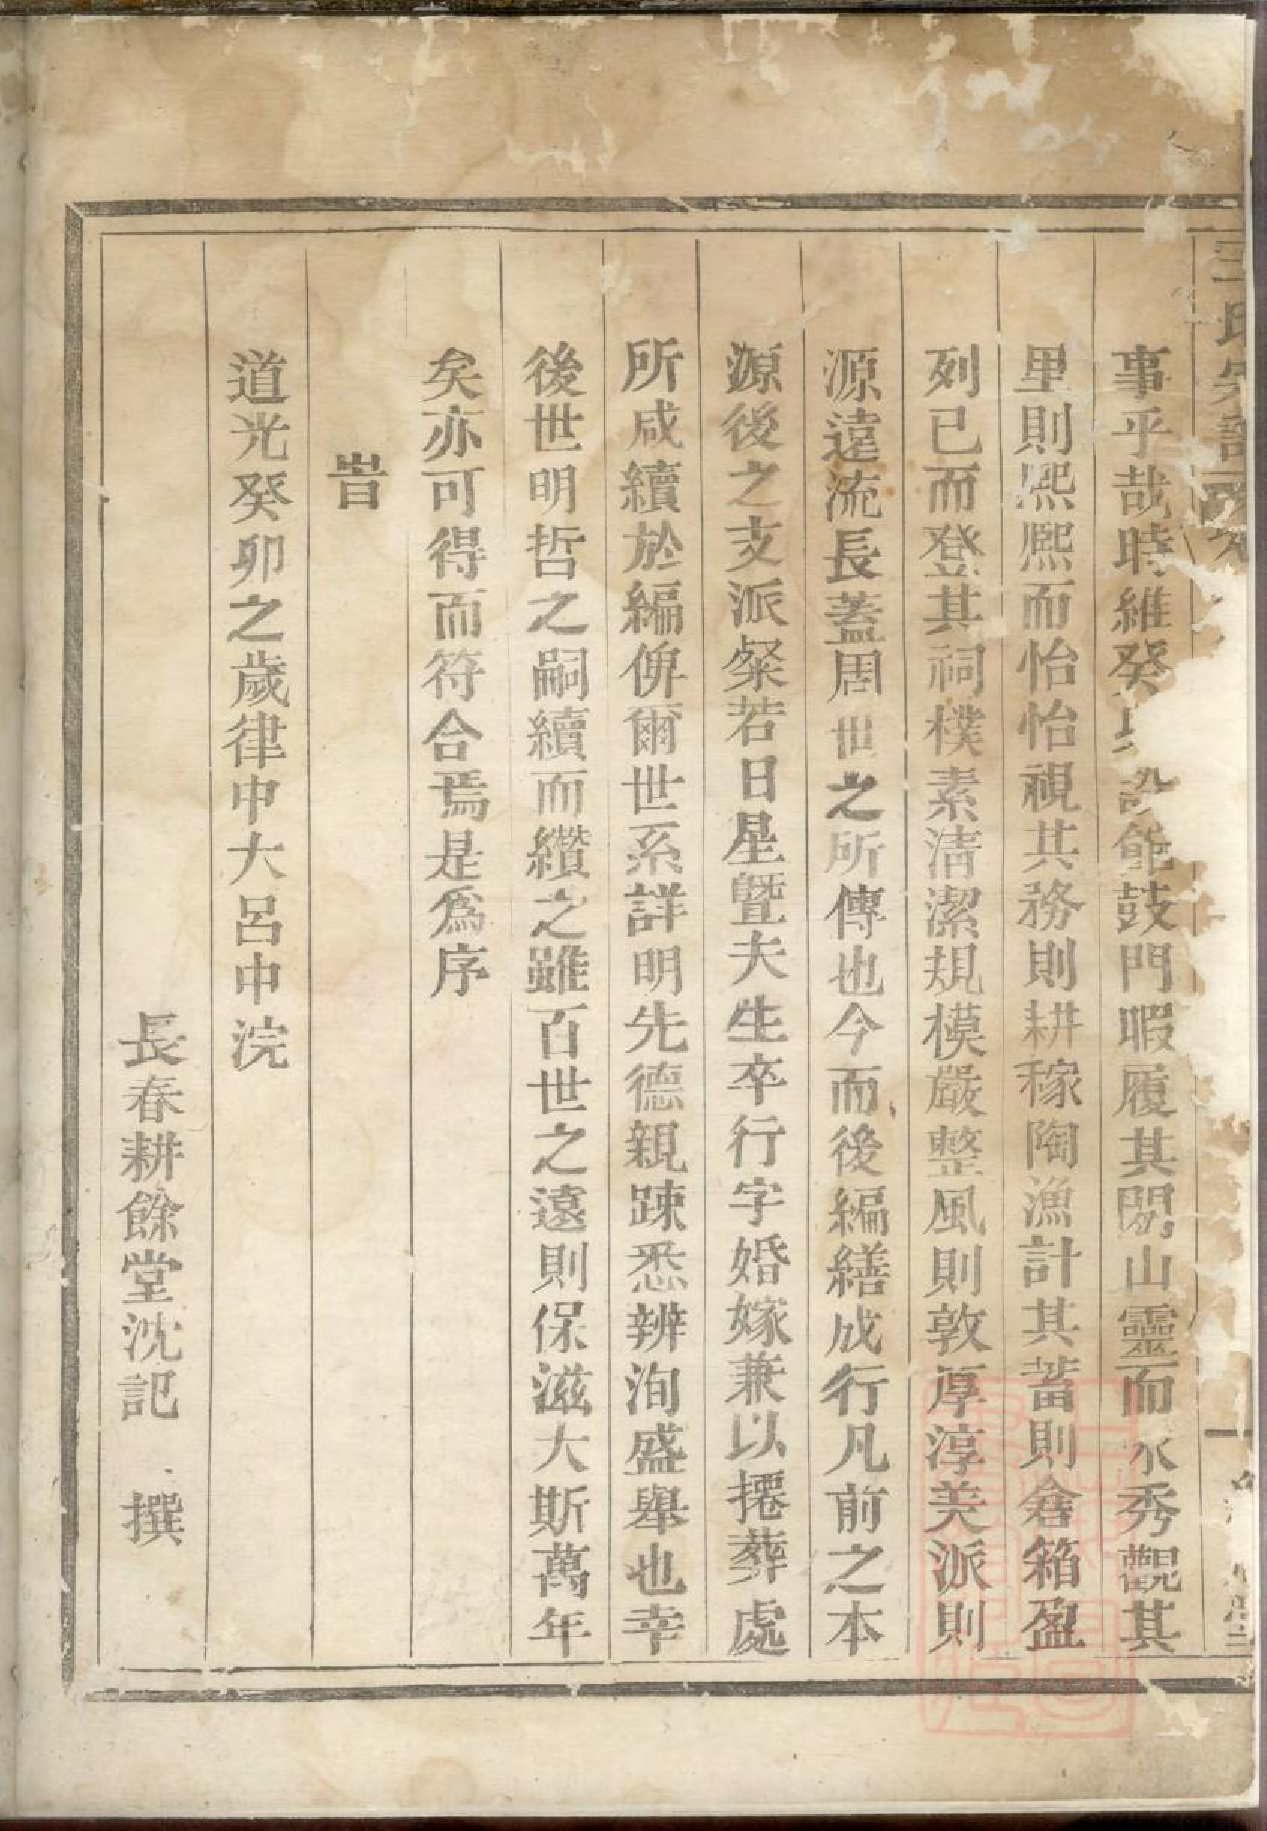 王氏宗譜
事乎哉時維癸設館鼓門暇履其閈山靈而水秀觀其
里則熈熈而怡怡視其務則耕稼陶漁計其蓄則倉箱盈
列已而登其祠樸素清潔規模嚴整風則敦厚淳美派則
源遠流長蓋周世之所傳也今而後編繕成行凡前之本
源後之支派粲若日星曁夫生卒行字婚嫁兼以捲葬處
所咸續於編俾爾世系詳明先德親踈悉辨洵盛舉也幸
後世明哲之嗣續而纘之雖百世之遠則保滋大斯萬年
矣亦可得而符合焉是爲序
旹
道光癸卯之歲律中大呂中浣
長春耕餘堂沈記 撰